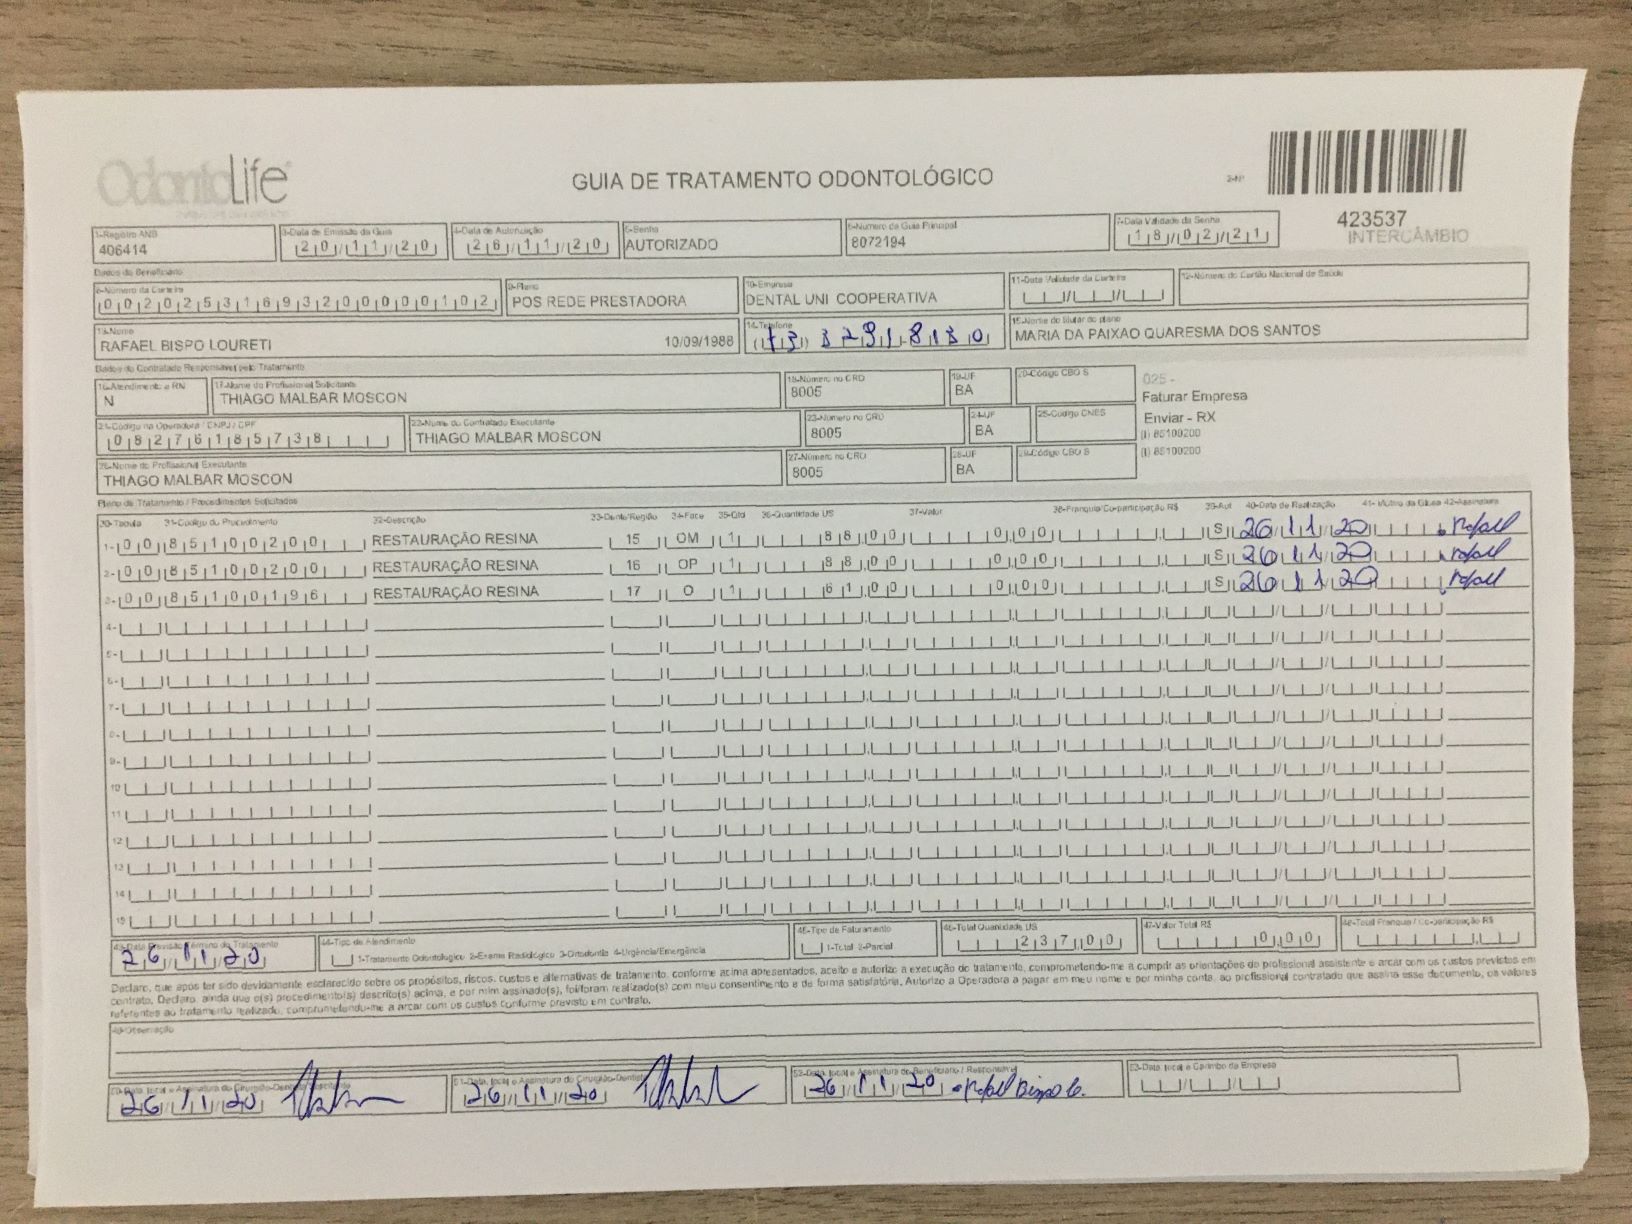 OdontoLife
GUIA DE TRATAMENTO ODONTOLÓGICO
2-Nº
423537
INTERCÂMBIO
1-Registro ANS
406414
3-Data de Emissão da Guia
20/11/20
4-Data de Autorização
26/11/20
5-Senha
AUTORIZADO
6-Número da Guia Principal
8072194
7-Data Validade da Senha
18/02/21
Dados do Beneficiário
8-Número da Carteira
00202531693200000102
9-Plano
POS REDE PRESTADORA
10-Empresa
DENTAL UNI COOPERATIVA
11-Data Validade da Carteira
12-Número do Cartão Nacional de Saúde
13-Nome
RAFAEL BISPO LOURETI 10/09/1988
14-Telefone
(73) 3291-8130
15-Nome do titular do plano
MARIA DA PAIXAO QUARESMA DOS SANTOS
Dados do Contratado Responsável pelo Tratamento
16-Atendimento a RN
N
17-Nome do Profissional Solicitante
THIAGO MALBAR MOSCON
18-Número no CRO
8005
19-UF
BA
20-Código CBO S
025 -
Faturar Empresa
Enviar - RX
(I) 85100200
(I) 85100200
21-Código na Operadora / CNPJ / CPF
08276185738
22-Nome do Contratado Executante
THIAGO MALBAR MOSCON
23-Número no CRO
8005
24-UF
BA
25-Código CNES
26-Nome do Profissional Executante
THIAGO MALBAR MOSCON
27-Número no CRO
8005
28-UF
BA
29-Código CBO S
Plano de Tratamento / Procedimentos Solicitados
30-Tabela 31-Código do Procedimento 32-Descrição 33-Dente/Região 34-Face 35-Qtd 36-Quantidade US 37-Valor 38-Franquia/Co-participação R$ 39-Aut 40-Data de Realização 41- Motivo da Glosa 42-Assinatura
1- 00 85100200 RESTAURAÇÃO RESINA 15 OM 1 88,00 0,00 S 26/11/20 Rafael
2- 00 85100200 RESTAURAÇÃO RESINA 16 OP 1 88,00 0,00 S 26/11/20 Rafael
3- 00 85100196 RESTAURAÇÃO RESINA 17 O 1 61,00 0,00 S 26/11/20 Rafael
4-
5-
6-
7-
8-
9-
10
11
12
13
14
15
43-Data Previsão Término do Tratamento
26/11/20
44-Tipo de Atendimento
1-Tratamento Odontológico 2-Exame Radiológico 3-Ortodontia 4-Urgência/Emergência
45-Tipo de Faturamento
1-Total 2-Parcial
46-Total Quantidade US
237,00
47-Valor Total R$
0,00
48-Total Franquia / Co-participação R$
Declaro, que após ter sido devidamente esclarecido sobre os propósitos, riscos, custos e alternativas de tratamento, conforme acima apresentados, aceito e autorizo a execução do tratamento, comprometendo-me a cumprir as orientações do profissional assistente e arcar com os custos previstos em
contrato. Declaro, ainda que o(s) procedimento(s) descrito(s) acima, e por mim assinado(s), foi/foram realizado(s) com meu consentimento e de forma satisfatória. Autorizo a Operadora a pagar em meu nome e por minha conta, ao profissional contratado que assina esse documento, os valores
referentes ao tratamento realizado, comprometendo-me a arcar com os custos conforme previsto em contrato.
49-Observação
50-Data, local e Assinatura do Cirurgião-Dentista Solicitante
26/11/20
51-Data, local e Assinatura do Cirurgião-Dentista
26/11/20
52-Data, local e Assinatura do Beneficiário / Responsável
26/11/20 Rafael Bispo L.
53-Data, local e Carimbo da Empresa